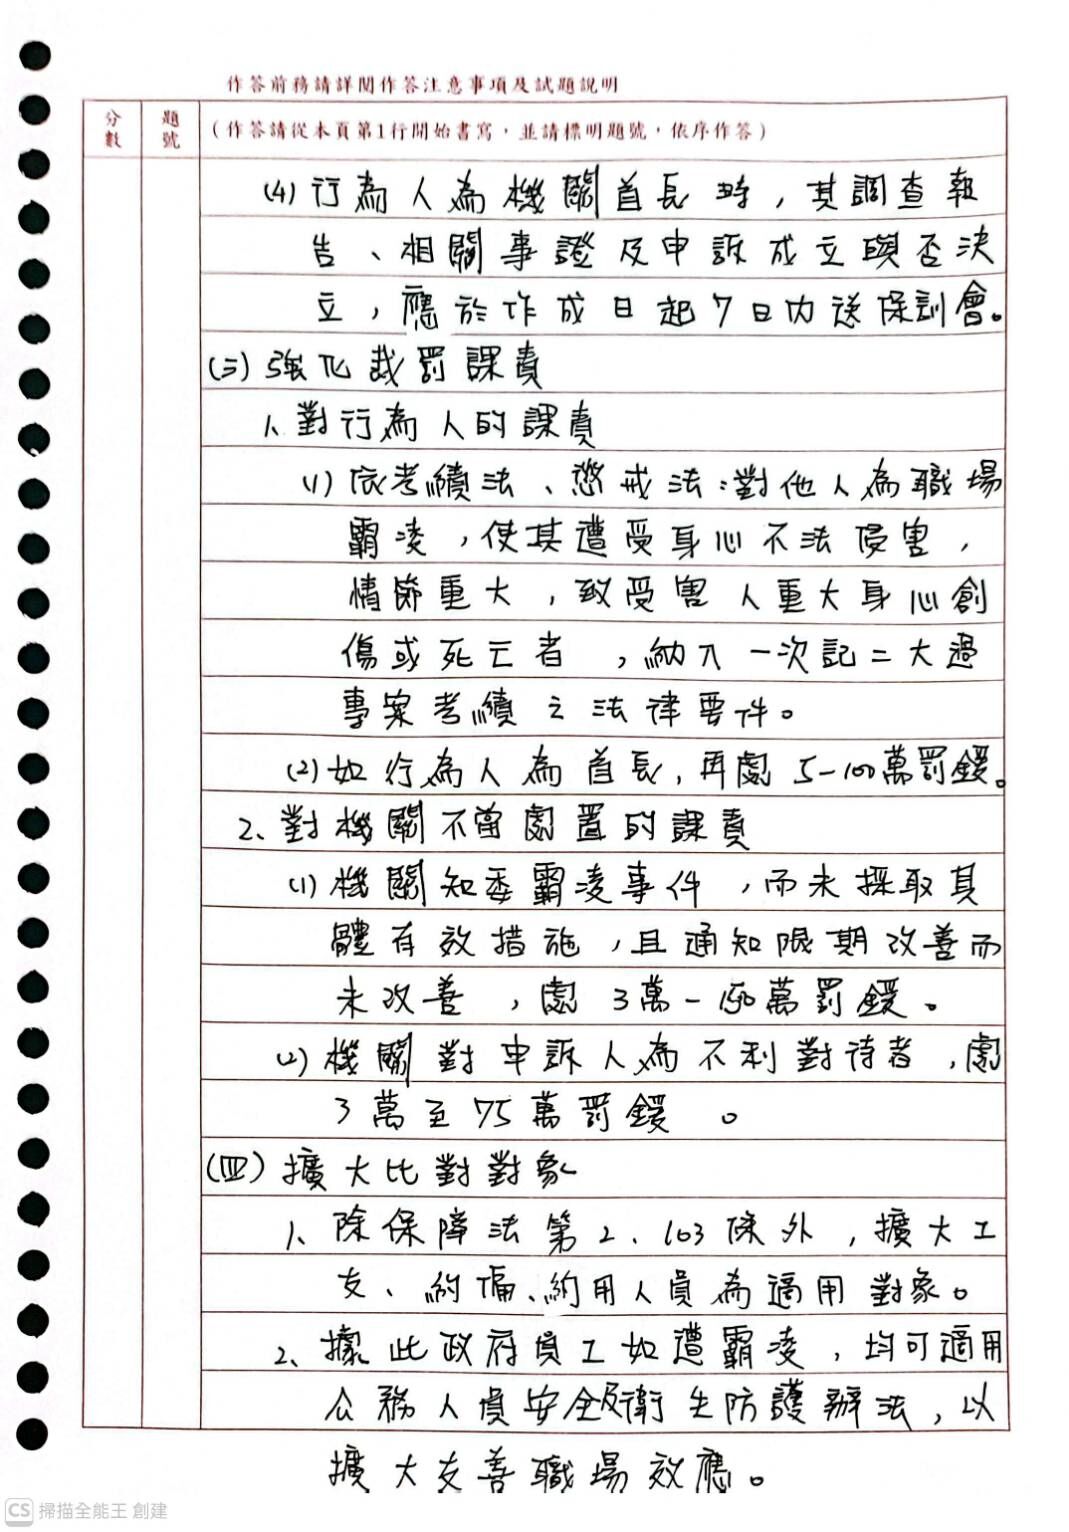 作答前務請詳閱作答注意事項及試題說明
分數
題號
(作答請從本頁第1行開始書寫，並請標明題號，依序作答)
(4)行為人為機關首長時，其調查報
告、相關事證及申訴成立與否決
立，應於作成日起7日內送保訓會。
(三)強化裁罰課責
1、對行為人的課責
(1)依考績法、懲戒法：對他人為職場
霸凌，使其遭受身心不法侵害，
情節重大，致受害人重大身心創
傷或死亡者，納入一次記二大過
專案考績之法律要件。
(2)如行為人為首長，再處5-100萬罰鍰。
2、對機關不當處置的課責
(1)機關知悉霸凌事件，而未採取具
體有效措施，且通知限期改善而
未改善，處3萬-150萬罰鍰。
(2)機關對申訴人為不利對待者，處
3萬至75萬罰鍰。
(四)擴大比對對象
1、除保障法第2、103條外，擴大工
友、約僱、約用人員為適用對象。
2、據此政府員工如遭霸凌，均可適用
公務人員安全及衛生防護辦法，以
擴大友善職場效應。
CS 掃描全能王 創建